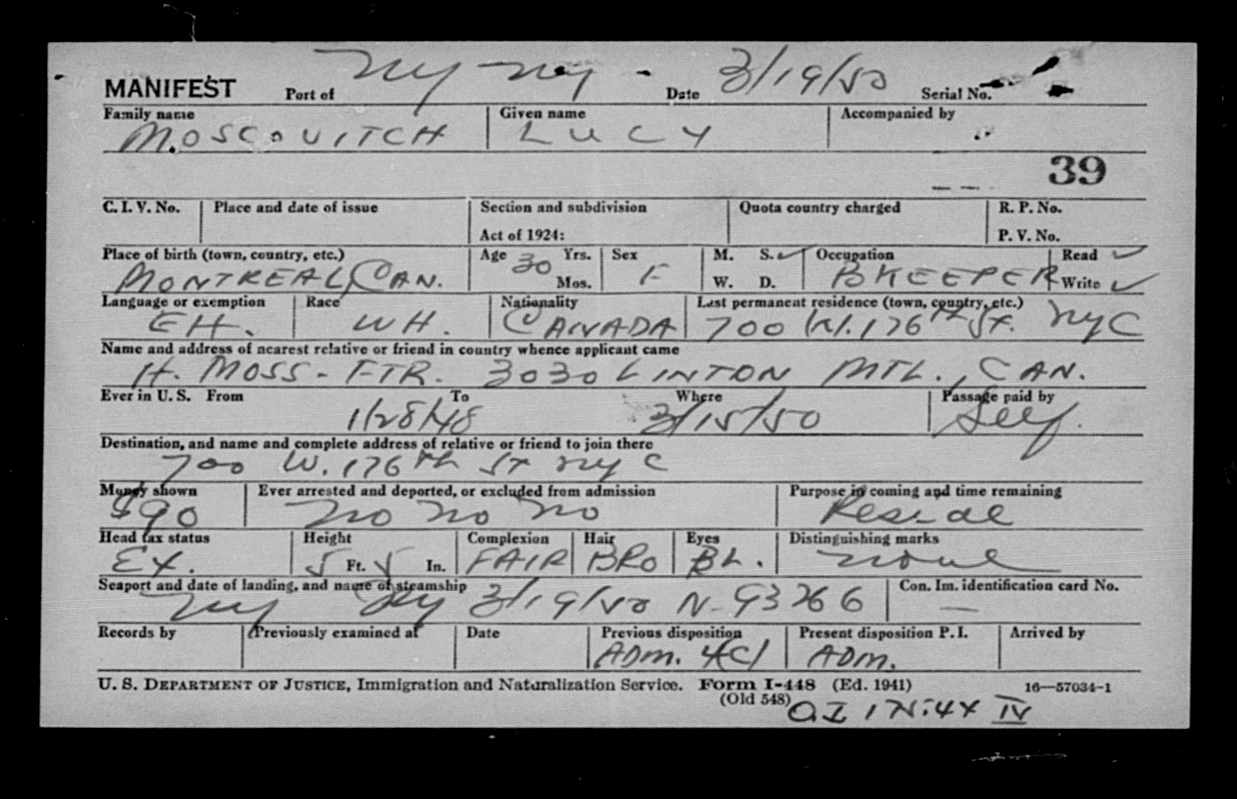 MANIFEST Port of NY NY - Date 3/19/50 Serial No.
Family name Given name Accompanied by
MOSCOVITCH LUCY
39
C. I. V. No. Place and date of issue Section and subdivision Quota country charged R. P. No.
Act of 1924: P. V. No.
Place of birth (town, country, etc.) Age 30 Yrs. Sex M. S. ✓ Occupation Read ✓
MONTREAL, CAN. Mos. F W. D. BKEEPER Write ✓
Language or exemption Race Nationality Last permanent residence (town, country, etc.)
EH. WH. CANADA 700 W. 176th St. NYC
Name and address of nearest relative or friend in country whence applicant came
H. MOSS - FTR. 3030 LINTON MTL., CAN.
Ever in U. S. From To Where Passage paid by
1/28/48 3/15/50 Self.
Destination, and name and complete address of relative or friend to join there
700 W. 176th St NYC
Money shown Ever arrested and deported, or excluded from admission Purpose in coming and time remaining
$90 no no no Reside
Head tax status Height Complexion Hair Eyes Distinguishing marks
Ex. 5 Ft. 5 In. FAIR BRO BL. none
Seaport and date of landing, and name of steamship Con. Im. identification card No.
NY NY 3/19/50 N-93766 —
Records by Previously examined at Date Previous disposition Present disposition P. I. Arrived by
ADM. 4C1 ADM.
U. S. DEPARTMENT OF JUSTICE, Immigration and Naturalization Service. Form I-448 (Ed. 1941) 16—57034-1
(Old 548) IV